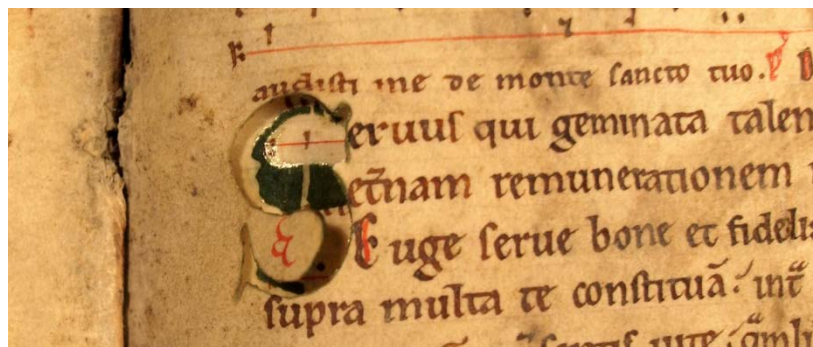 audisti me de monte sancto tuo.
Seruus qui geminata talen
et̄nam remunerationem
Euge serue bone et fidelis
supra multa te constituā. int̄